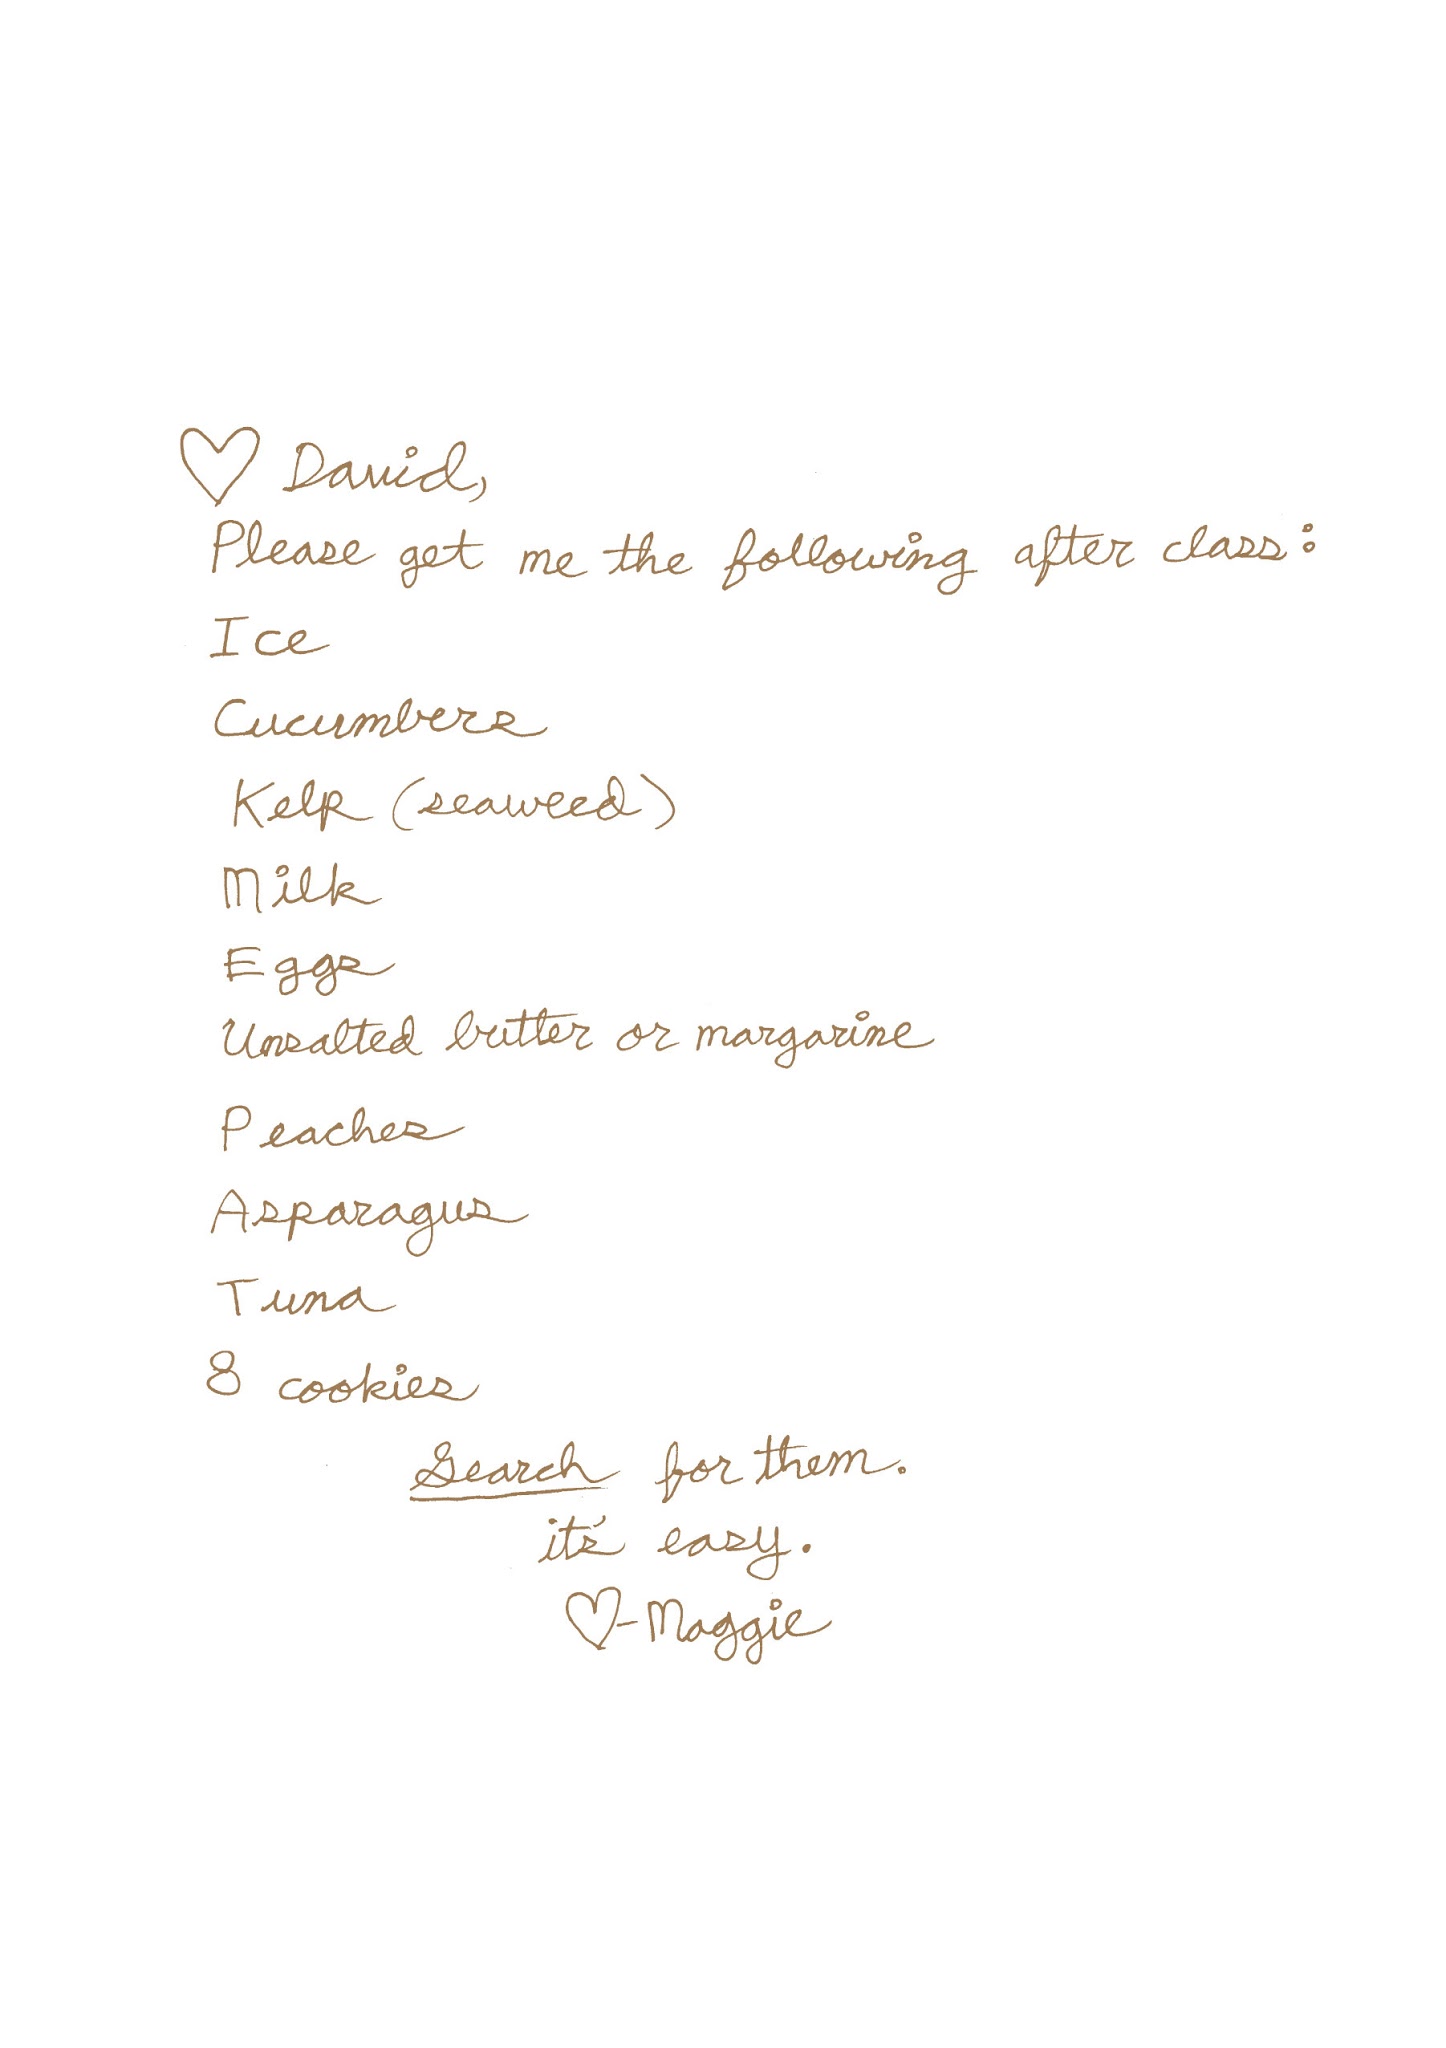 ♡ David,
Please get me the following after class:
Ice
Cucumbers
Kelp (seaweed)
Milk
Eggs
Unsalted butter or margarine
Peaches
Asparagus
Tuna
8 cookies
Search for them.
it's easy.
♡-Maggie